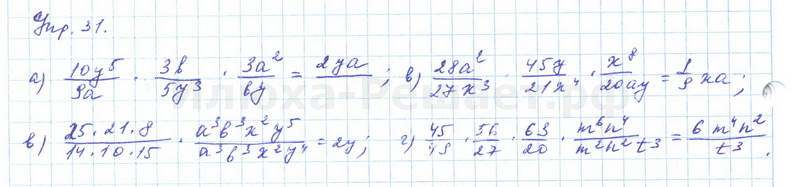 Упр. 31.
а) 10y⁵/9a · 3b/5y³ · 3a²/by = 2ya; в) 28a²/27x³ · 45y/21x⁴ · x⁸/20ay = 1/9 xa;
в) 25·21·8/14·10·15 · a³b³x²y⁵/a³b³x²y⁴ = 2y; г) 45/49 · 56/27 · 63/20 · m⁶n⁴/m²n²t³ = 6m⁴n²/t³.